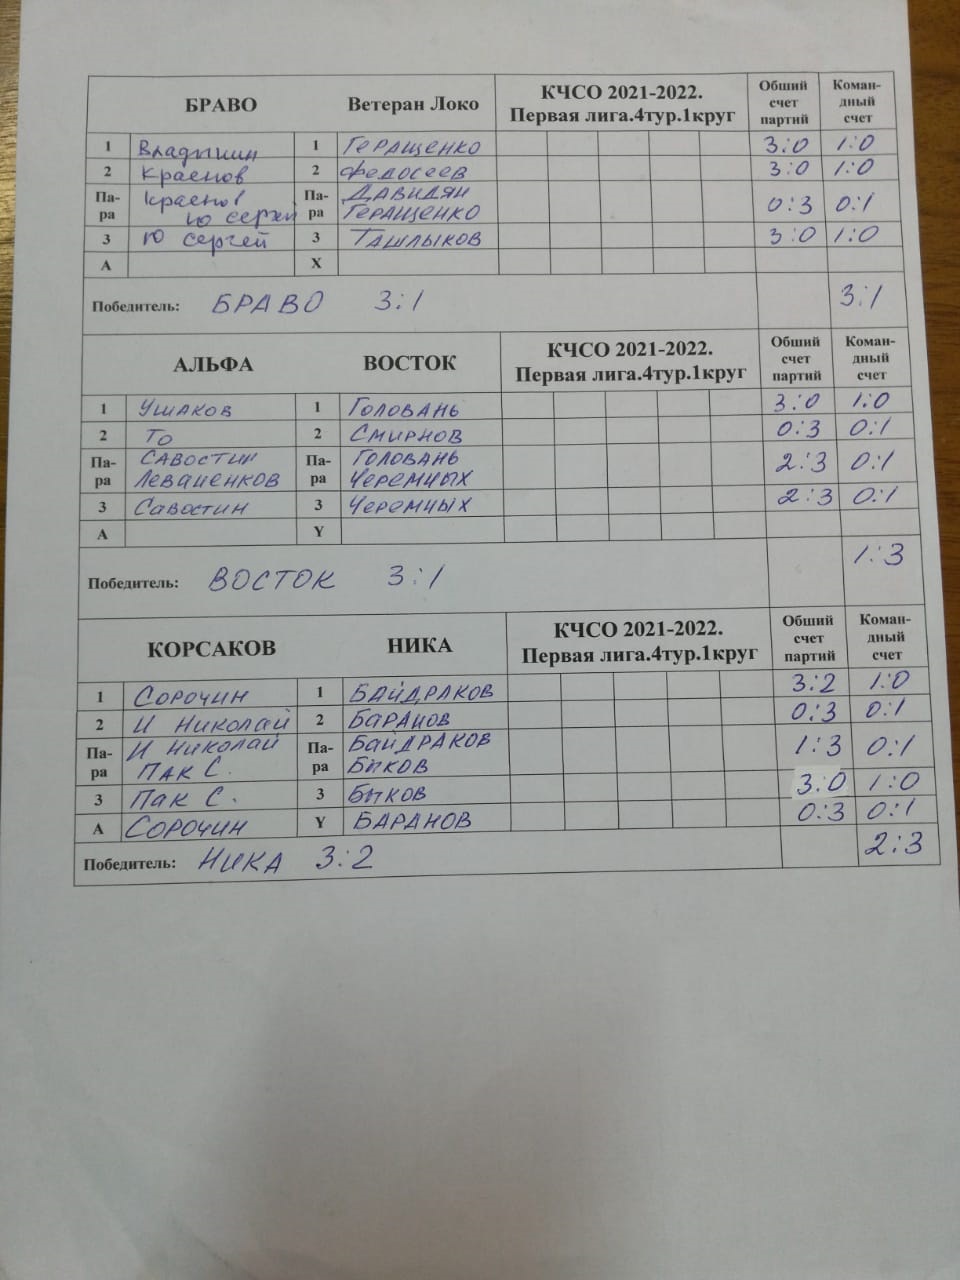 БРАВО Ветеран Локо КЧСО 2021-2022. Первая лига.4тур.1круг Общий счет партий Коман-дный счет
1 Владыкин 1 Геращенко 3:0 1:0
2 Краснов 2 Федосеев 3:0 1:0
Па-ра Краснов Ю Сергей Па-ра Давидян Геращенко 0:3 0:1
3 Ю Сергей 3 Ташлыков 3:0 1:0
А X
Победитель: БРАВО 3:1 3:1
АЛЬФА ВОСТОК КЧСО 2021-2022. Первая лига.4тур.1круг Общий счет партий Коман-дный счет
1 Ушаков 1 Головань 3:0 1:0
2 То 2 Смирнов 0:3 0:1
Па-ра Савостин Леваненков Па-ра Головань Черемных 2:3 0:1
3 Савостин 3 Черемных 2:3 0:1
А Y
Победитель: ВОСТОК 3:1 1:3
КОРСАКОВ НИКА КЧСО 2021-2022. Первая лига.4тур.1круг Общий счет партий Коман-дный счет
1 Сорочин 1 Байдраков 3:2 1:0
2 И Николай 2 Баранов 0:3 0:1
Па-ра И Николай Пак С. Па-ра Байдраков Быков 1:3 0:1
3 Пак С. 3 Быков 3:0 1:0
А Сорочин Y Баранов 0:3 0:1
Победитель: НИКА 3:2 2:3